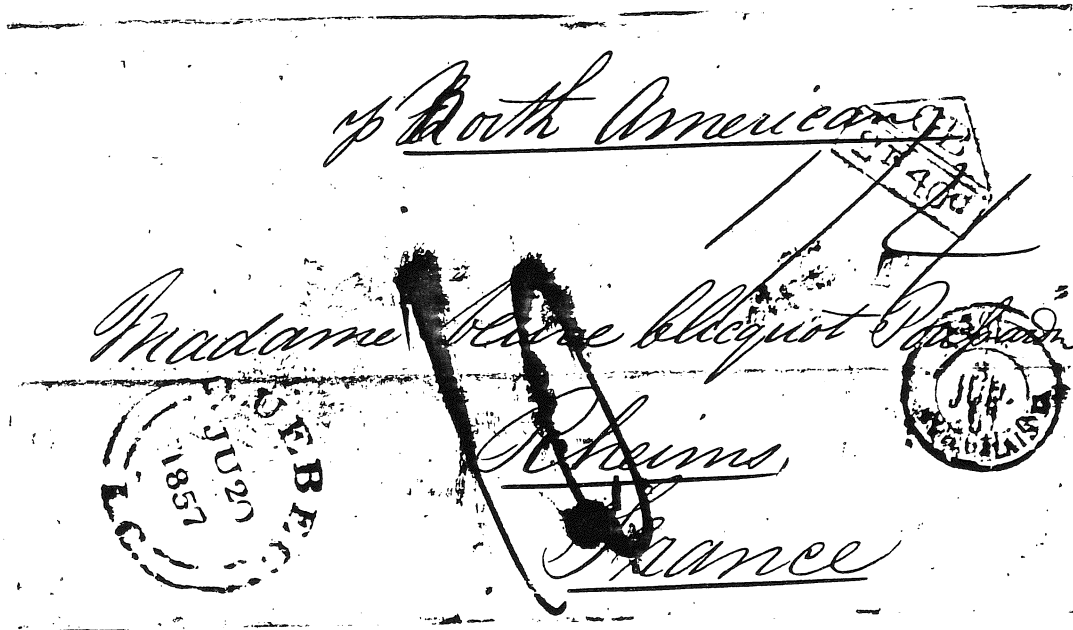 p North American
40c.
Madame Veuve Clicquot Ponsardin
Rheims,
France
QUEBEC
JU 20
1857
L.C.
CALAIS